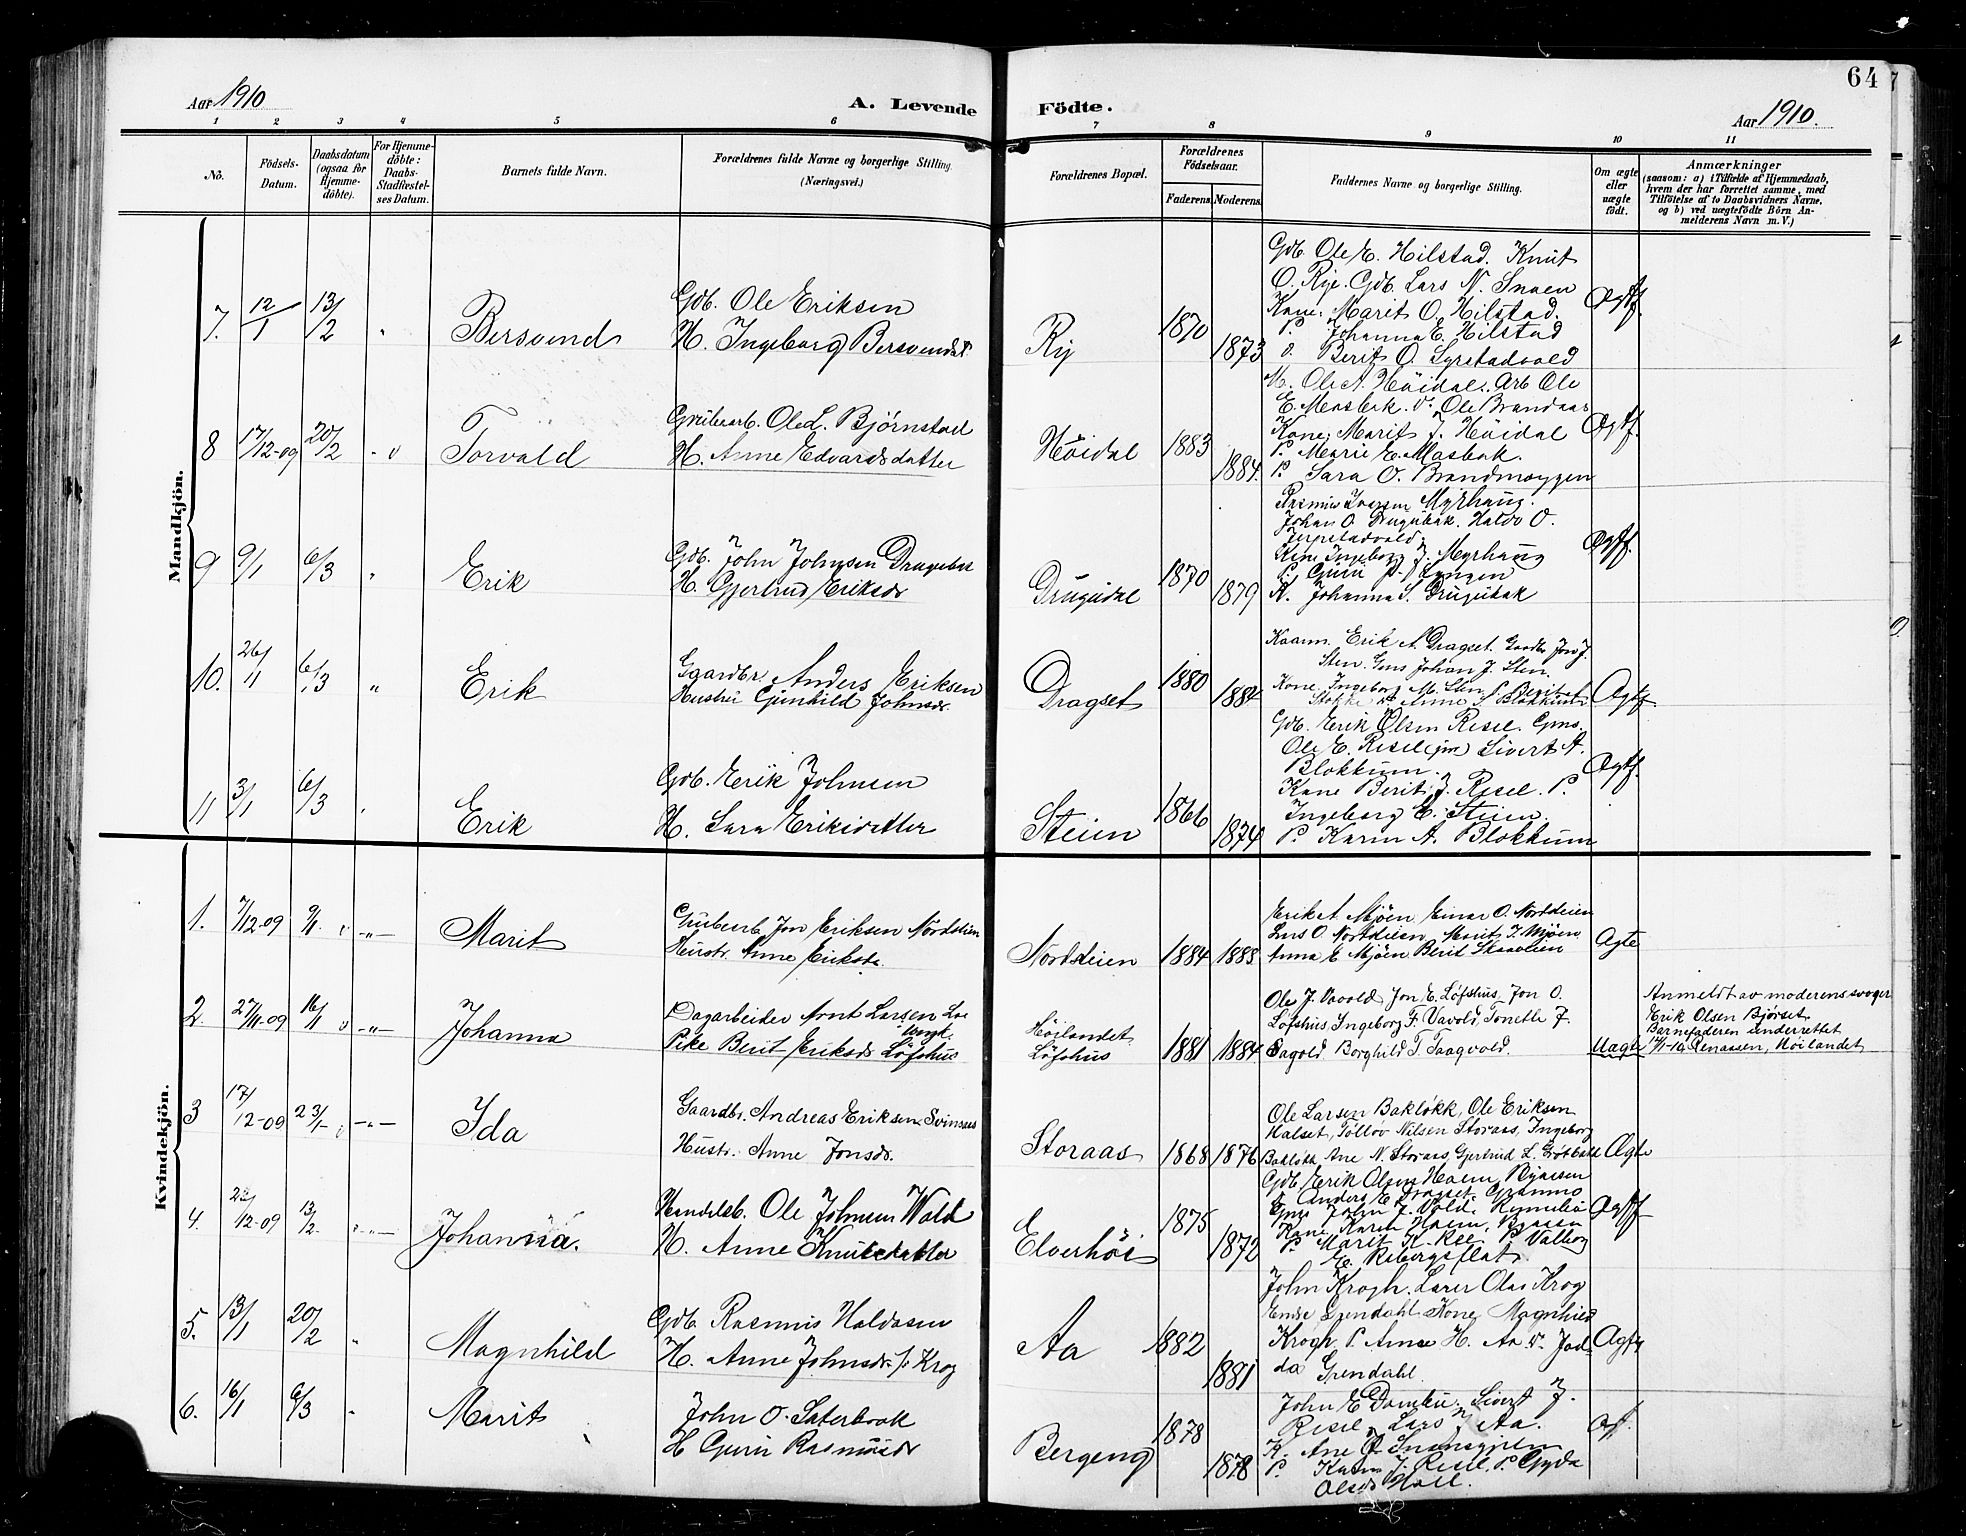 64
Aar 1910
A. Levende Födte.
Aar 1910.
1 2 3 4 5 6 7 8 9 10 11
No.
Födsels-
Datum.
Daabsdatum
(ogsaa for
Hjemme-
döbte).
For Hjemme-
döbte:
Daabs-
Stadfæstel-
ses Datum.
Barnets fulde Navn.
Forældrenes fulde Navne og borgerlige Stilling.
(Næringsvei.)
Forældrenes Bopæl.
Forældrenes
Födselsaar.
Faderens. Moderens.
Faddernes Navne og borgerlige Stilling.
Om ægte
eller
uægte
födt.
Anmærkninger
(saasom: a) i Tilfælde af Hjemmedaab,
hvem der har forrettet samme, med
Tilföielse af to Daabsvidners Navne,
og b) ved uægtefödte Börn An-
melderens Navn m. V.)
Mandkjön.
7. 12/1 13/2 Bersvend
Gdb. Ole Eriksen
H. Ingeborg Bersvendsd.
Ry 1870 1873
Gdb. Ole E. Hilstad. Knut
O. Rye. Gdb. Lars N. Snoen
Kone: Marit O. Hilstad.
P. Johanna E. Hilstad
Berit O. Syrstadvold
Ægtf.
8 17/12-09 20/2 Torvald
Grubearb. Ole L. Bjørnstad
H. Anne Edvardsdatter
Höidal 1883 1884.
Ole A. Höidal. Arb Ole
E. Mosbak. Ole Brandaas
Kone; Marit J. Höidal
P. Marie E. Mosbak.
P. Sara O. Brandmoggen
Ægtf.
9 9/1 6/3 Erik
Gdb. John Johnsen Drugubak
H. Gjertrud Eriksdr
Drugudal 1870 1879
Rasmus Ivarsen Myrhaug.
Johan O. Drugubak. Haldo O.
Jerpstadvold.
Kone Ingeborg J. Myrhaug
P. Guru P. Lyngen
K. Johanna S. Drugubak
Ægtf.
10. 26/11 6/3 Erik
Gaardbr. Anders Eriksen
Hustru Gunhild Johnsdr.
Dragset 1880 1884
Kaarm. Erik A. Dragset. Gaardbr Jon J.
Sten. Gms Johan J. Sten.
Kone Ingeborg M. Sten P. Berit
Stokke Anne S. Blokkum
Ægtf
11 3/1 6/3 Erik
Gdb. Erik Johnsen
H. Sara Eriksdatter
Steien 1866 1874
Gdb. Erik Olsen Resel. Gms.
Ole E. Resel (jm) Sivert A.
Blokkum.
Kone Berit J. Resel. P.
Ingeborg E. Steien.
P. Karen A. Blokkum
Ægtf.
Kvindekjön.
1. 7/12-09 9/1 Marit
Grubearb Jon Eriksen Nordsteien
Hustr. Anne Eriksdr.
Nordsteien 1884 1888
Erik A. Mjøen Einar O. Nordsteien
Lars O. Nordsteien, Marit J. Mjøen.
Anna E Mjøen Berit Skaaleien
Ægte
2. 27/11-09 16/1 Johanna
Dagarbeider Arnt Larsen Lo
Ungk.
Pike Berit Eriksdr Löfshus
Höilandet
Löfshus
1881 1884
Ole J. Vavold Jon E. Löfshus, Jon O.
Löfshus, Ingeborg F. Vavold, Tonette J.
Sagvold Borghild T. Saagvold.
Uægte
Anmeldt av moderens svoger
Erik Olsen Bjørset
Barnefaderen underrettet
17/1-10 Höilandet
3 17/12-09 23/1 Ida
Gaardbr. Andreas Eriksen Svinsaas
Hustr. Anne Jonsdr.
Storaas 1868 1876
Ole Larsen Bakløkk, Ole Eriksen
Halset, Tölløv Nilsen Storaas, Ingeborg
Bakløkk Ane N. Storaas, Gjertrud L. Grötbakk
Ægte
4. 23/12-09 13/2 Johanna.
Handelsb. Ole Johnsen Wold
H. Anne Knutsdatter
Elverhöi 1875 1872
Gdb. Erik Olsen Hoem, Bjaasen
Anders E. Dragset
Gms John J. Vold. Rennebu
Kone Karen Hoem,
P. Marit K. Ree P. Valborg
E. Rebergsflat
Ægtf
5. 13/1 20/2 Magnhild
Gdb Rasmus Haldosen
H. Anne Johnsdr. f. Krog
Aa 1882 1881
John Krogh. Lærer Olas Krog
Grendahl. Kone Magnhild
Krogh, P. Anne H. Aa Jad-
da Grendahl.
Ægtf
6. 16/1 6/3 Marit
John O. Sæterbrok
H Guru Rasmusdr
Bergeng 1878 1878
John E. Sivert J.
Resel, Lars Aa.
K. Ane
P. Karen J. Resel. P. Gyda
Olsdr Holl.
Æf.